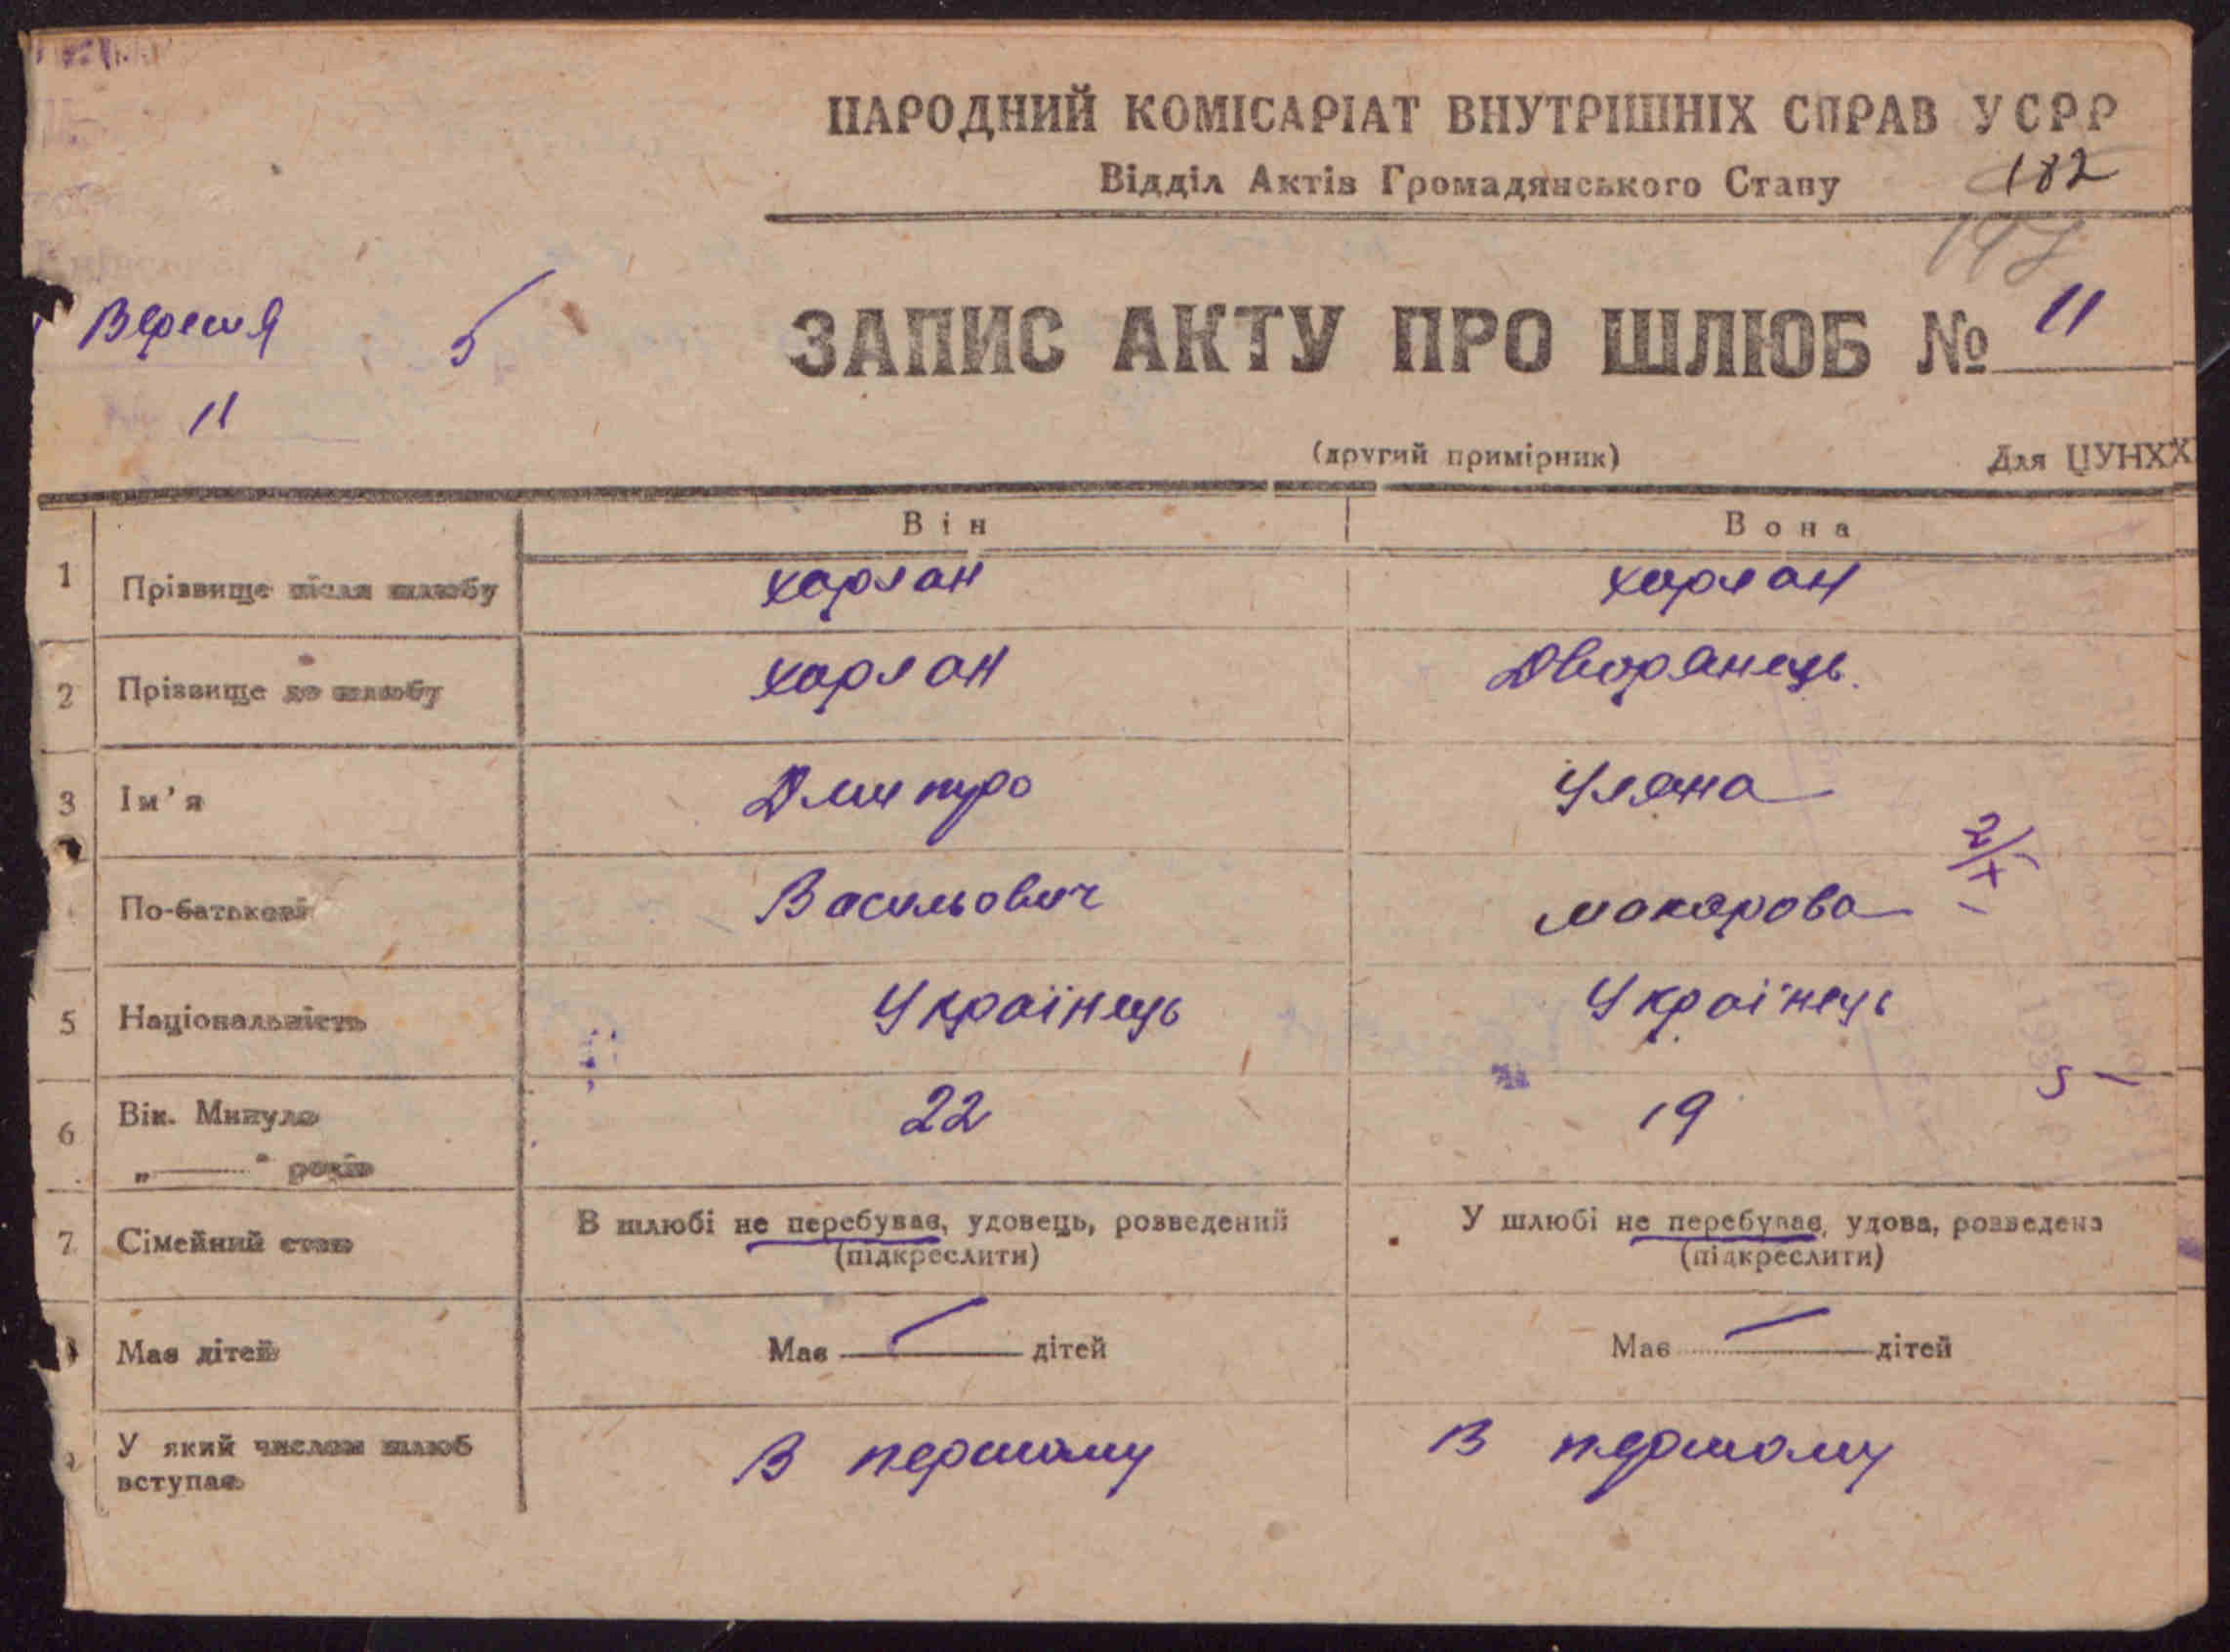 НАРОДНИЙ КОМІСАРІАТ ВНУТРІШНІХ СПРАВ УСРР
Відділ Актів Громадянського Стану 182
197
Вересня 5
ЗАПИС АКТУ ПРО ШЛЮБ № 11
11
(другий примірник) Для ЦУНХХ
Він Вона
1 Прізвище після шлюбу харлан харлан
2 Прізвище до шлюбу харлан Дворянець.
3 Ім'я Дмитро Уляна
2/X
По-батькові Васильович макарова
5 Національність Українець Українець
6 Вік. Минуло 22 19 5
„ “ років
7 Сімейний стан В шлюбі не перебуває, удовець, розведений У шлюбі не перебуває, удова, розведена
(підкреслити) (підкреслити)
Має дітей Має — дітей Має — дітей
У який числом шлюб В першому В першому
вступає